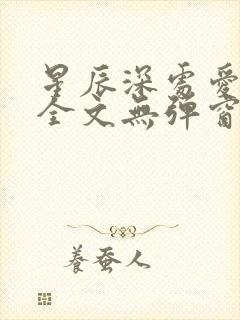 星辰深處愛
全文無彈窗
養蚕人